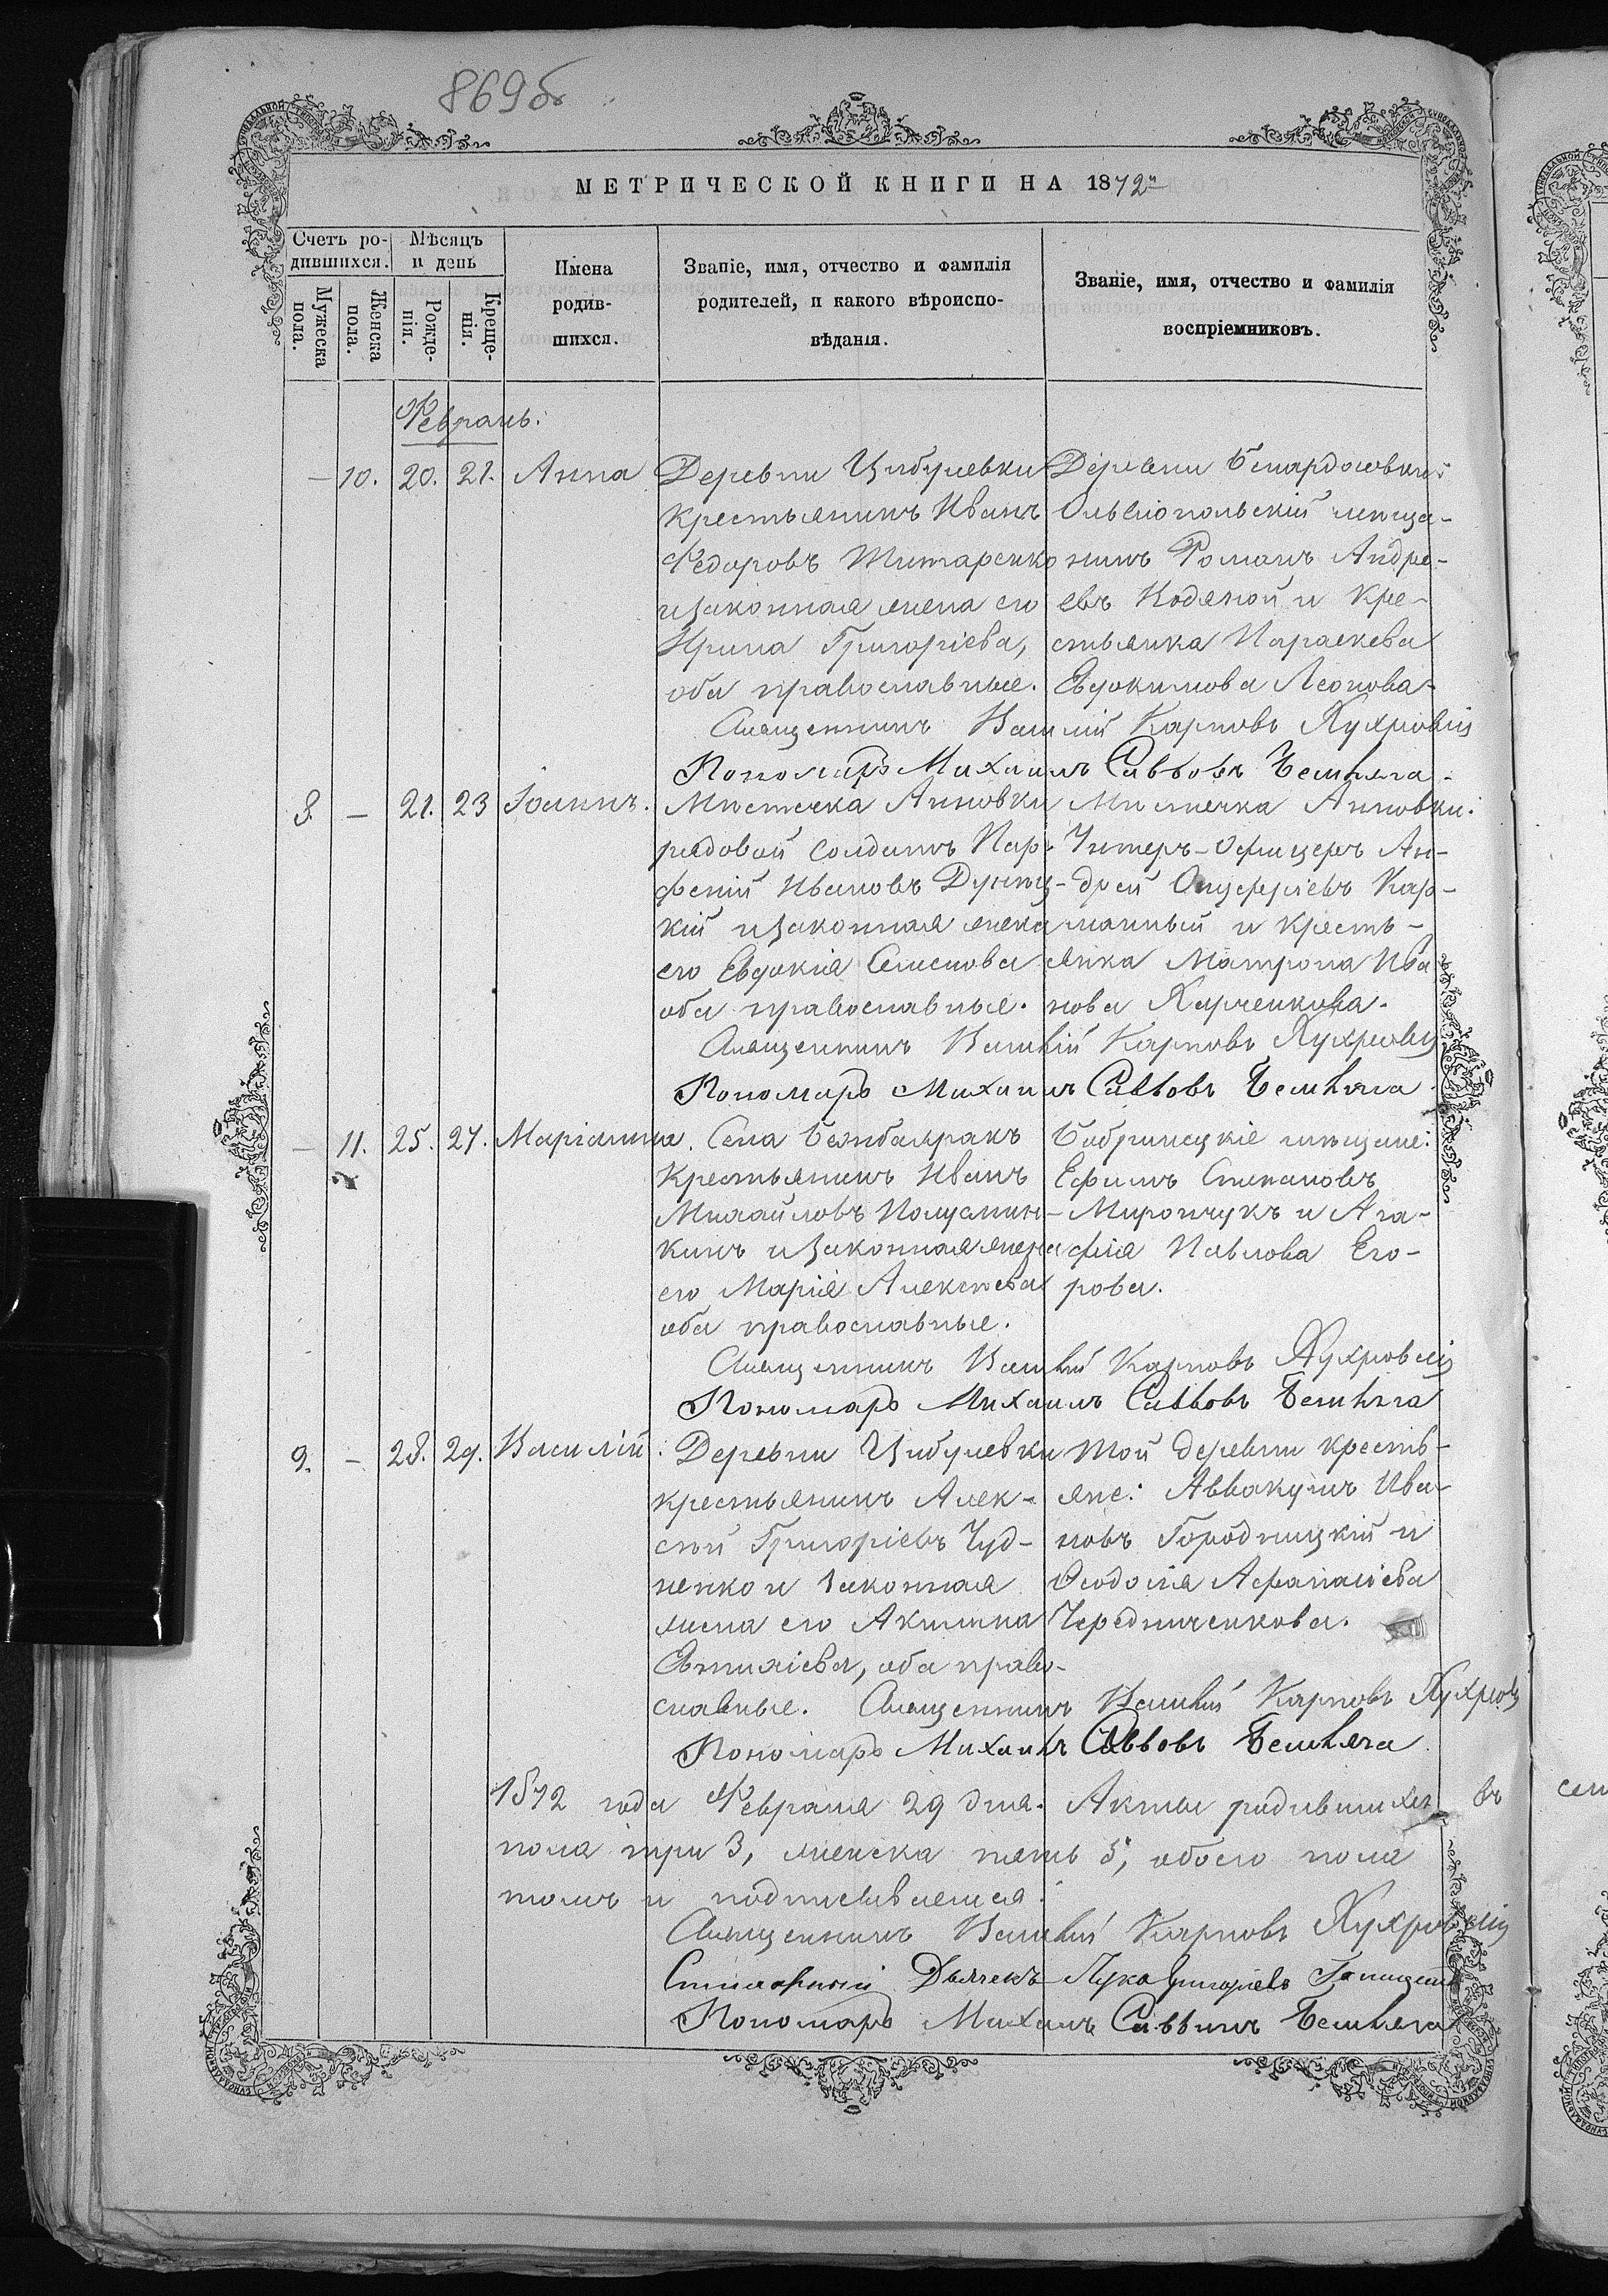 869об
МЕТРИЧЕСКОЙ КНИГИ НА 1872й
Счетъ ро-
дившихся.
Мѣсяцъ
и день
Мужеска
пола.
Женска
пола.
Рожде-
нія.
Креще-
нія.
Имена
родив-
шихся.
Званіе, имя, отчество и фамилія
родителей, и какого вѣроиспо-
вѣданія.
Званіе, имя, отчество и фамилія
воспріемниковъ.
Февраль.
— 10. 20. 21. Анна
Деревни Цибулевки
крестьянинъ Иванъ
Федоровъ Титаренко
и законная жена его
Ирина Григоріева,
оба православные.
Деревни
Ольвіопольскій мѣща-
нинъ Романъ Андре-
евъ Кодяной и кре-
стьянка Параскева
Евдокимова Леонова.
Священникъ Василій Карповъ
Пономарь Михаилъ Саввовъ
8. — 21. 23 Іоаннъ.
Мистечка Анновки
рядовой солдатъ Пар-
феній Ивановъ
кій и законная жена
его Евдокія Семенова
оба православные.
Мистечка Анновки:
Унтеръ-Офицеръ Ан-
дрей Онуфріевъ Кар-
манный и кресть-
янка Матрона Ива
нова Харченкова.
Священникъ Василій Карповъ
Пономарь Михаилъ Саввовъ
— 11. 25. 27. Маріанна.
Села Бешбайракъ
крестьянинъ Иванъ
Михайловъ
кинъ и законная жена
его Марія Алексѣева
оба православные.
Бобринецкіе мѣщане:
Ефимъ Степановъ
Мирончукъ и Ага-
фія Павлова Его-
рова.
Священникъ Василій Карповъ
Пономарь Михаилъ Саввовъ
9. — 28. 29. Василій.
Деревни Цибулевки
крестьянинъ Алек-
сѣй Григоріевъ Чуд-
ненко и законная
жена его Акилина
Евтихіева, оба право-
славные.
Той деревни кресть-
яне: Аввакумъ Ива-
новъ Городницкій и
Ѳеодосія Афанасіева
Чередниченкова.
Священникъ Василій Карповъ
Пономарь Михаилъ Саввовъ
1872 года Февраля 29 дня. Акты родившихся въ
пола три 3, женска пять 5, обоего пола
томъ и подписываемся:
Священникъ Василій Карповъ
Дьячекъ Лука Григорьевъ
Пономарь Михаилъ Саввинъ